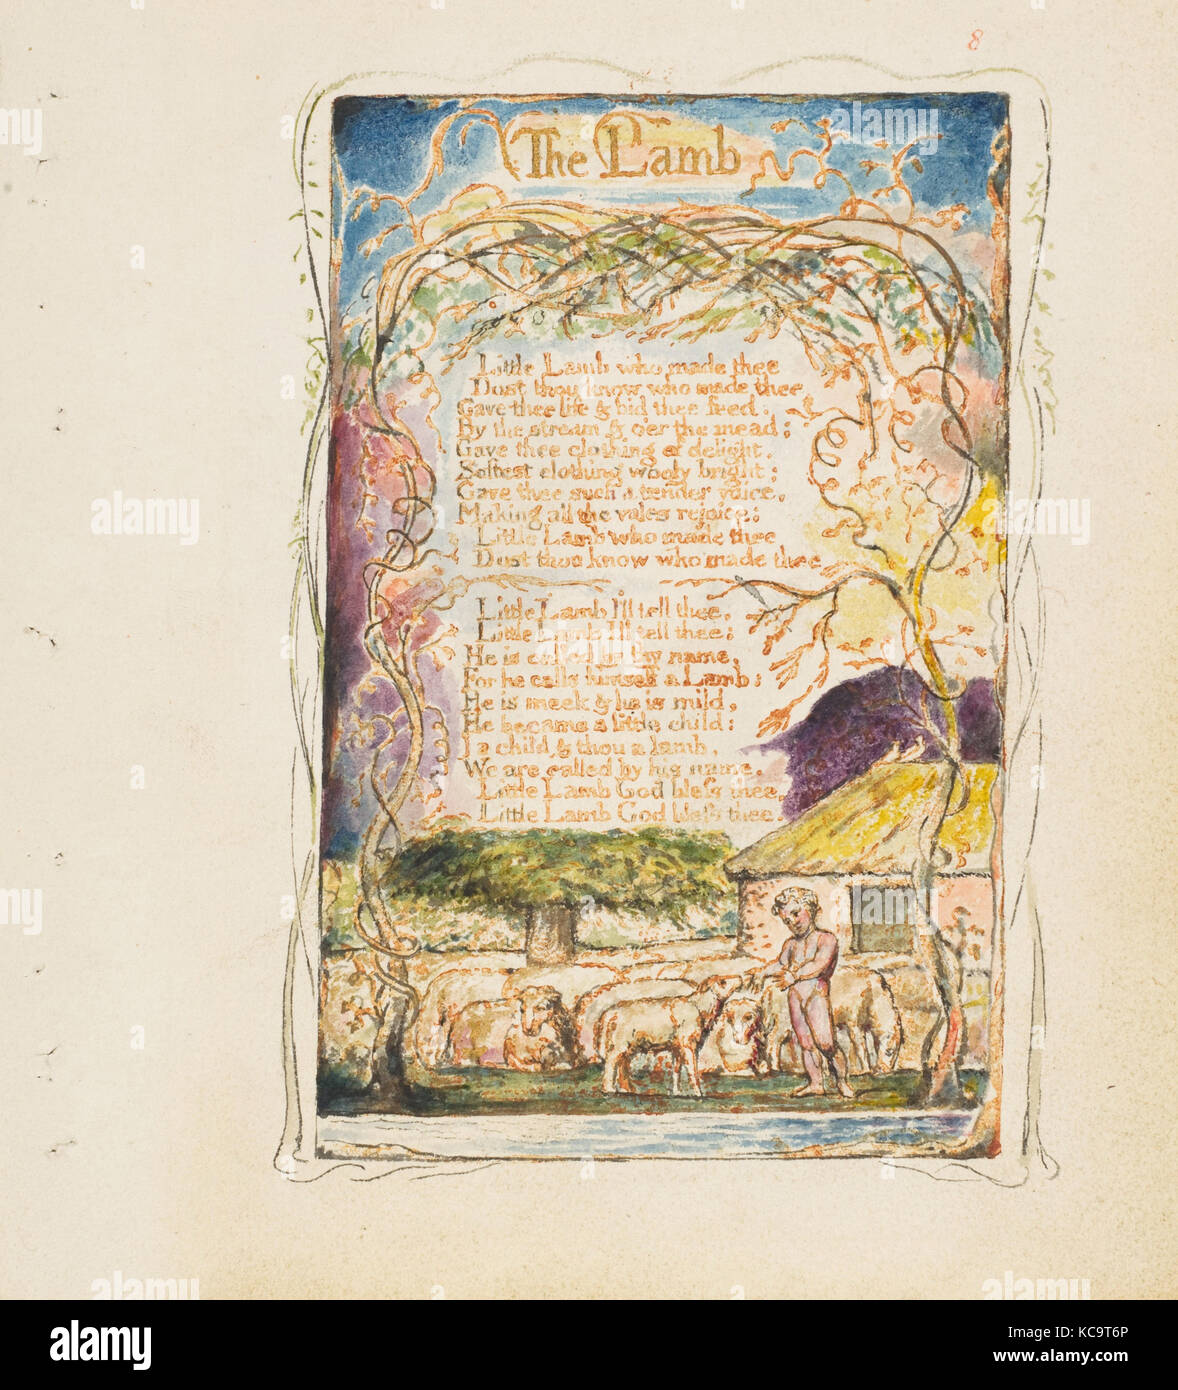 8
The Lamb
Little Lamb who made thee
Dost thou know who made thee
Gave thee life & bid thee feed.
By the stream & o'er the mead;
Gave thee clothing of delight,
Softest clothing wooly bright;
Gave thee such a tender voice,
Making all the vales rejoice:
Little Lamb who made thee
Dost thou know who made thee
Little Lamb I'll tell thee,
Little Lamb I'll tell thee;
He is called by thy name,
For he calls himself a Lamb:
He is meek & he is mild,
He became a little child:
I a child & thou a lamb,
We are called by his name.
Little Lamb God bless thee.
Little Lamb God bless thee.
alamy
Image ID: KC9T6P
www.alamy.com